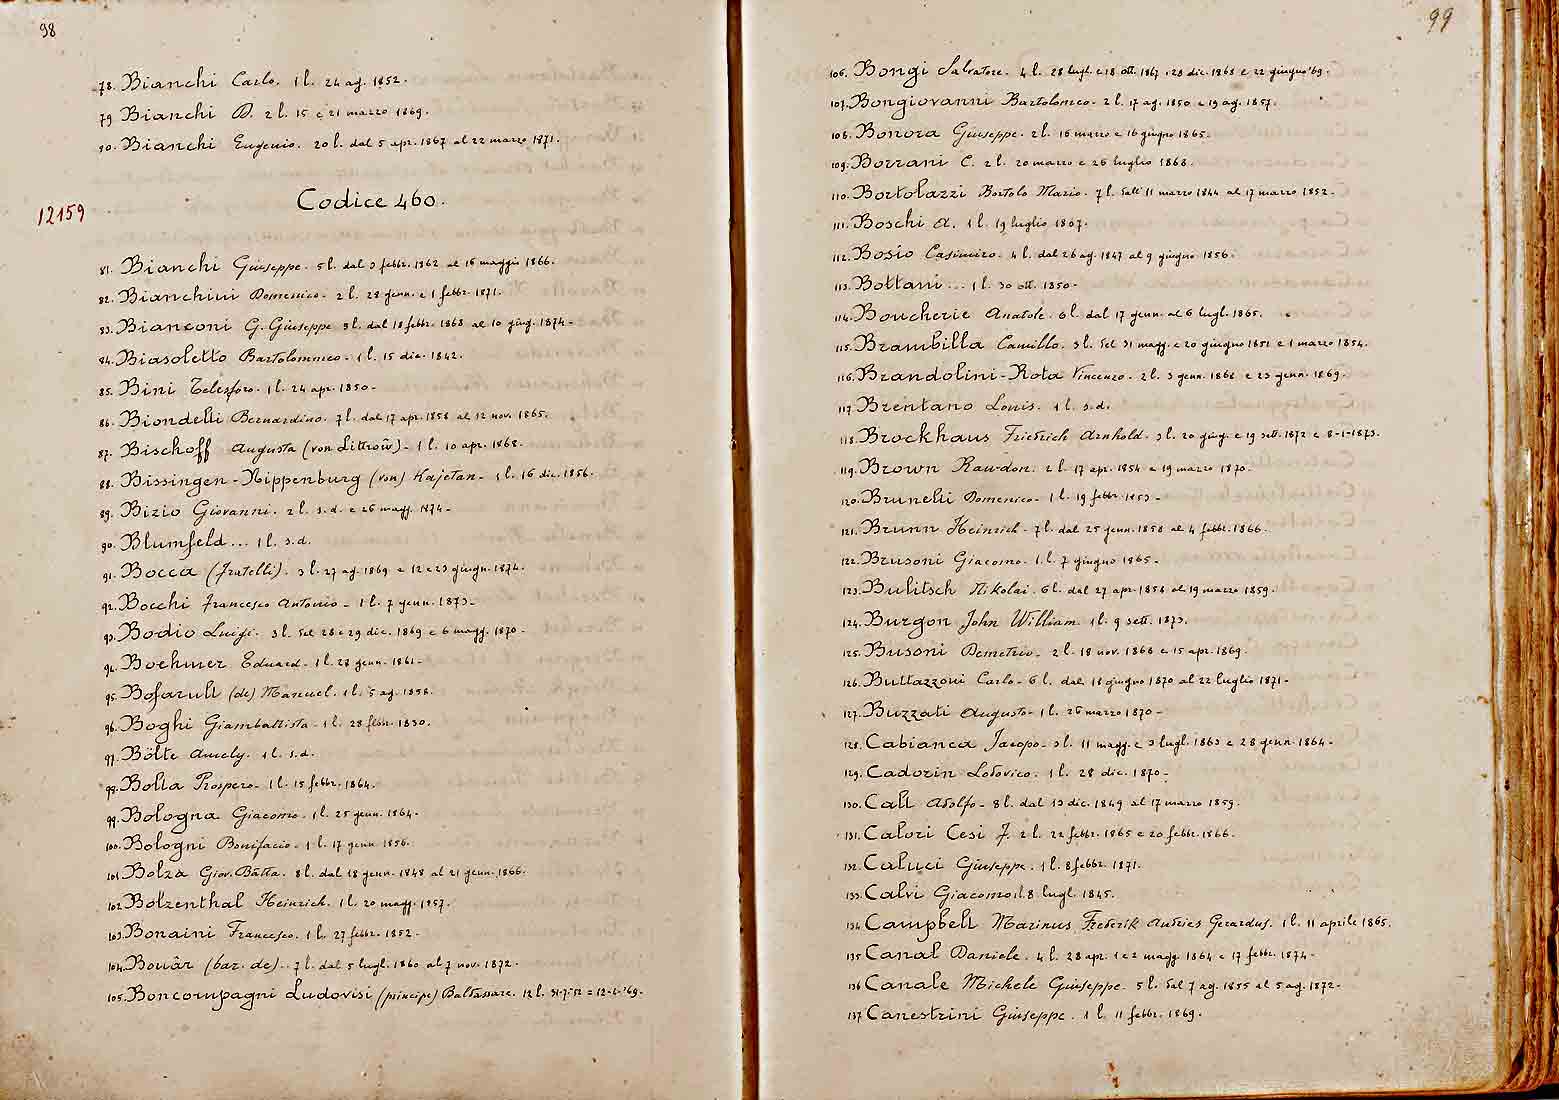 98
78. Bianchi Carlo. 1 l. 24 ag. 1852.
79 Bianchi D. 2 l. 15 e 21 marzo 1869.
90. Bianchi Eugenio. 20 l. dal 5 apr. 1867 al 22 marzo 1871.
12159
Codice 460.
81. Bianchi Giuseppe. 5 l. dal 3 febbr. 1862 al 16 maggio 1866.
82. Bianchini Domenico. 2 l. 28 genn. e 1 febbr. 1871.
83. Bianconi G. Giuseppe 9 l. dal 18 febbr. 1868 al 10 giug. 1874-
84. Biasoletto Bartolommeo. 1 l. 15 dic. 1842.
85. Bini Telesforo. 1 l. 24 apr. 1850-
86. Biondelli Bernardino. 7 l. dal 17 apr. 1858 al 12 nov. 1865.
87. Bischoff Augusta (von Littrow). 1 l. 10 apr. 1868.
88. Bissingen-Nippenburg (von) Kajetan- 1 l. 16 dic. 1856.
89. Bizio Giovanni. 2 l. s.d. e 26 magg. 1874-
90. Blumfeld... 1 l. s.d.
91. Bocca (fratelli). 3 l. 27 ag. 1869 e 12 e 23 giugn. 1874.
92. Bocchi Francesco Antonio- 1 l. 7 genn. 1873-
93. Bodio Luigi. 3 l. del 28 e 29 dic. 1869 e 6 magg. 1870-
94. Boehmer Eduard- 1 l. 28 genn. 1861-
95. Bofarull (de) Manuel. 1 l. 5 ag. 1858.
96. Boghi Giambattista- 1 l. 28 febbr. 1830.
97. Bölte Amely. 1 l. s.d.
98. Bolla Prospero- 1 l. 15 febbr. 1864.
99. Bologna Giacomo. 1 l. 25 genn. 1864.
100. Bologni Bonifacio. 1 l. 17 genn. 1856.
101. Bolza Giov. Batta. 8 l. dal 18 genn. 1848 al 21 genn. 1866.
102. Bolzenthal Heinrich. 1 l. 20 magg. 1857.
103. Bonaini Francesco. 1 l. 27 febbr. 1852.
104. Bonär (bar. de).. 7 l. dal 5 lugl. 1860 al 7 nov. 1872.
105. Boncompagni Ludovisi (principe) Baldassare. 12 l.
99
106. Bongi Salvatore. 4 l. 28 lugl. e 18 ott. 1867. 28 dic. 1868 e 22 giugno '69.
107. Bongiovanni Bartolomeo. 2 l. 17 ag. 1850 e 19 ag. 1857.
108. Bonora Giuseppe. 2 l. 16 marzo e 16 giugno 1865.
109. Borrani C. 2 l. 20 marzo e 26 luglio 1868.
110. Bortolazzi Bortolo Mario. 7 l. dall' 11 marzo 1844 al 17 marzo 1852.
111. Boschi A. 1 l. 19 luglio 1867.
112. Bosio Casimiro. 4 l. dal 26 ag. 1847 al 9 giugno 1856.
113. Bottani... 1 l. 30 ott. 1850-
114. Boucherie Anatole. 6 l. dal 17 genn. al 6 lugl. 1865.
115. Brambilla Camillo. 3 l. del 31 magg. e 20 giugno 1851 e 1 marzo 1854.
116. Brandolini-Rota Vincenzo. 2 l. 3 genn. 1868 e 23 genn. 1869.
117. Brentano Louis. 1 l. s.d.
118. Brockhaus Friedrich Arnhold. 3 l. 20 giug. e 19 sett. 1872 e 8-1-1873.
119. Brown Rawdon. 2 l. 17 apr. 1854 e 19 marzo 1870.
120. Brunelli Domenico- 1 l. 19 febbr. 1853-
121. Brunn Heinrich- 7 l. dal 25 genn. 1858 al 4 febbr. 1866.
122. Brusoni Giacomo. 1 l. 7 giugno 1865-
123. Bulitsch Nikolai. 6 l. dal 27 apr. 1858 al 19 marzo 1859.
124. Burgon John William. 1 l. 9 sett. 1873.
125. Busoni Demetrio- 2 l. 18 nov. 1868 e 15 apr. 1869.
126. Buttazzoni Carlo- 6 l. dal 18 giugno 1870 al 22 luglio 1871-
127. Buzzati Augusto- 1 l. 26 marzo 1870-
128. Cabianca Jacopo- 3 l. 11 magg. e 3 lugl. 1863 e 28 genn. 1864-
129. Cadorin Lodovico. 1 l. 28 dic. 1870-
130. Call Adolfo- 8 l. dal 13 dic. 1849 al 17 marzo 1859.
131. Calori Cesi F. 2 l. 22 febbr. 1865 e 20 febbr. 1866.
132. Caluci Giuseppe. 1 l. 8 febbr. 1871.
133. Calvi Giacomo 1 l. 8 lugl. 1845.
134. Campbell Marinus Frederik Andries Gerardus. 1 l. 11 aprile 1865.
135 Canal Daniele. 4 l. 28 apr. 1 e 2 magg. 1864 e 17 febbr. 1874-
136 Canale Michele Giuseppe. 5 l. dal 7 ag. 1855 al 5 ag. 1872-
137 Canestrini Giuseppe. 1 l. 11 febbr. 1869.